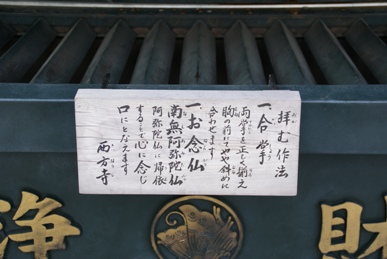 拝む作法
一、合掌
両掌を正しく揃え
胸の前にてやや斜めに
合わせます
一、お念仏
南無阿弥陀仏
阿弥陀仏に帰依
することで心に念じ
口にとなえます
西方寺
浄
財